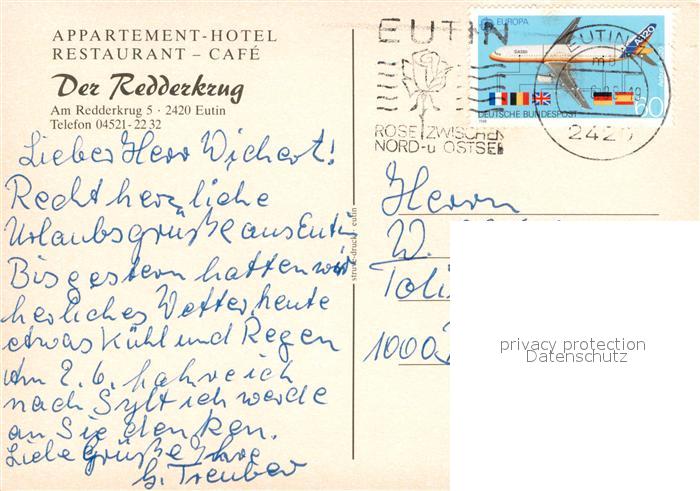 APPARTEMENT-HOTEL
RESTAURANT – CAFÉ
Der Redderkrug
Am Redderkrug 5 · 2420 Eutin
Telefon 04521-2232
Lieber Herr Wichert!
Recht herzliche
Urlaubsgrüße aus Eutin
Bis gestern hatten wir
herliches Wetter, heute
etwas Kühl und Regen
Am 2.6. fahre ich
nach Sylt ich werde
an Sie denken.
Liebe Grüße Ihre
G. Treuber
struve-druck, eutin
EUTIN
ROSE ZWISCHEN
NORD- u OSTSEE
EUROPA
A320
60
DEUTSCHE BUNDESPOST
1988
EUTIN
2420
Herrn
W.
1000
privacy protection
Datenschutz